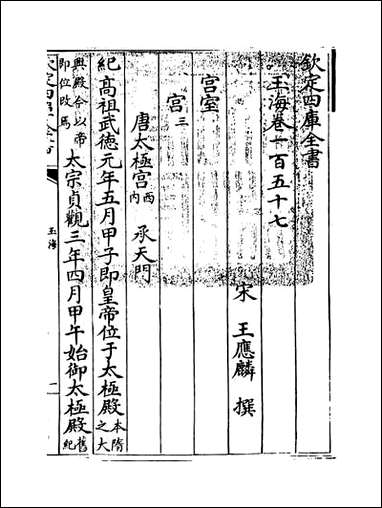 欽定四庫全書
玉海卷一百五十七
宋 王應麟 撰
宮室
宮三
唐太極宮西内 承天門
紀高祖武德元年五月甲子即皇帝位于太極殿本隋之大
興殿令以帝即位改焉 太宗貞觀三年四月甲午始御太極殿舊紀
玉海